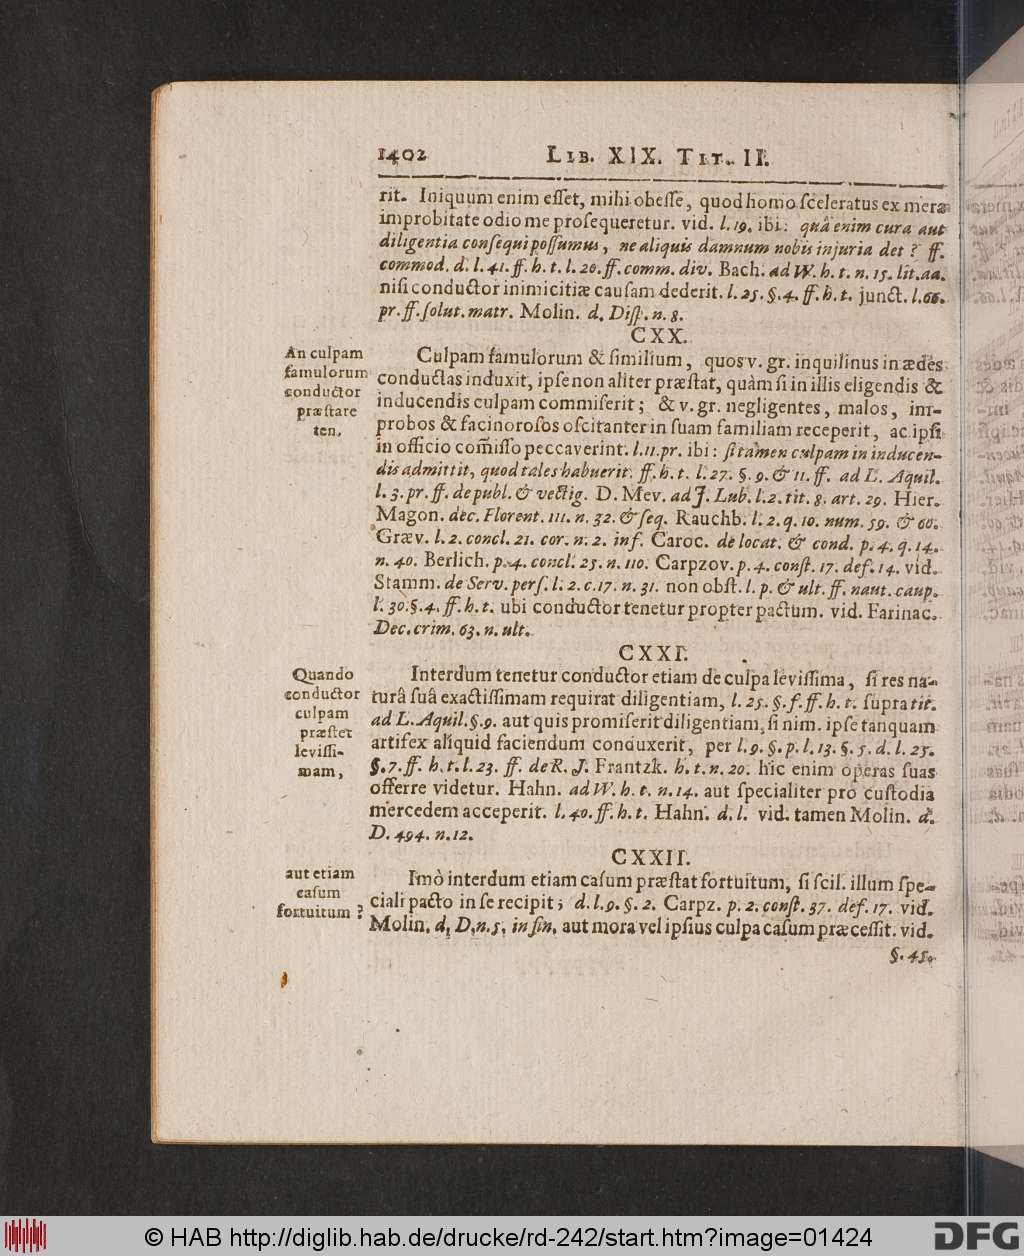 1402 LIB. XIX. TIT. II.
rit. Iniquum enim eſſet, mihi obeſſe, quod homo ſceleratus ex mera
improbitate odio me proſequeretur. vid. l. 19. ibi: quâ enim cura aut
diligentia conſequi poſſumus, ne aliquis damnum nobis injuria det? ff.
commod. d. l. 41. ff. h. t. l. 20. ff. comm. div. Bach. ad W. h. t. n. 15. lit. aa.
niſi conductor inimicitiæ cauſam dederit. l. 25. §. 4. ff. h. t. junct. l. 66.
pr. ff. ſolut. matr. Molin. d. Diſp. n. 8.
CXX.
An culpam
famulorum
conductor
præſtare
ten.
Culpam famulorum & ſimilium, quos v. gr. inquilinus in ædes
conductas induxit, ipſe non aliter præſtat, quàm ſi in illis eligendis &
inducendis culpam commiſerit; & v. gr. negligentes, malos, im-
probos & facinoroſos oſcitanter in ſuam familiam receperit, ac ipſi
in officio com̃iſſo peccaverint. l. 11. pr. ibi: ſi tamen culpam in inducen-
dis admittit, quod tales habuerit. ff. h. t. l. 27. §. 9. & 11. ff. ad L. Aquil.
l. 3. pr. ff. de publ. & vectig. D. Mev. ad J. Lub. l. 2. tit. 8. art. 29. Hier.
Magon. dec. Florent. 111. n. 32. & ſeq. Rauchb. l. 2. q. 10. num. 59. & 60.
Græv. l. 2. concl. 21. cor. n. 2. inf. Caroc. de locat. & cond. p. 4. q. 14.
n. 40. Berlich. p. 4. concl. 25. n. 110. Carpzov. p. 4. conſt. 17. def. 14. vid.
Stamm. de Serv. perſ. l. 2. c. 17. n. 31. non obſt. l. p. & ult. ff. naut. caup.
l. 30. §. 4. ff. h. t. ubi conductor tenetur propter pactum. vid. Farinac.
Dec. crim. 63. n. ult.
CXXI.
Quando
conductor
culpam
præſtet
leviſſi-
mam,
Interdum tenetur conductor etiam de culpa leviſſima, ſi res na-
turâ ſuâ exactiſſimam requirat diligentiam, l. 25. §. f. ff. h. t. ſupra tit.
ad L. Aquil. §. 9. aut quis promiſerit diligentiam, ſi nim. ipſe tanquam
artifex aliquid faciendum conduxerit, per l. 9. §. p. l. 13. §. 5. d. l. 25.
§. 7. ff. h. t. l. 23. ff. de R. J. Frantzk. h. t. n. 20. hic enim operas ſuas
offerre videtur. Hahn. ad W. h. t. n. 14. aut ſpecialiter pro cuſtodia
mercedem acceperit. l. 40. ff. h. t. Hahn. d. l. vid. tamen Molin. d.
D. 494. n. 12.
CXXII.
aut etiam
caſum
fortuitum?
Imò interdum etiam caſum præſtat fortuitum, ſi ſcil. illum ſpe-
ciali pacto in ſe recipit; d. l. 9. §. 2. Carpz. p. 2. conſt. 37. def. 17. vid.
Molin. d. D. n. 5. in fin. aut mora vel ipſius culpa caſum præceſſit. vid.
§. 45.
© HAB http://diglib.hab.de/drucke/rd-242/start.htm?image=01424
DFG